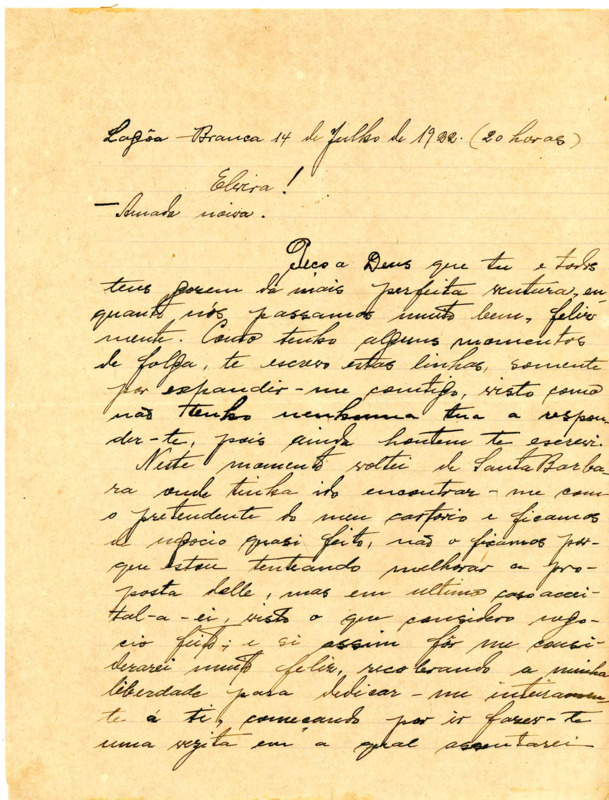 Lagôa - Branca 14 de Julho de 1922. (20 horas)
Elvira!
- Amada noiva.
Peço a Deus que tu e todos
teus gosem da mais perfeita ventura, en-
quanto nós passamos muito bem, feliz-
mente. Como tenho alguns momentos
de folga, te escrevo estas linhas, somente
por expandir-me comtigo, visto como
não tenho nenhuma tua a respon-
der-te, pois ainda hontem te escrevi.
Neste momento voltei de Santa Barba-
ra onde tinha ido encontrar-me com
o pretendente do meu cartorio e ficamos
de negocio quasi feito, não o ficamos por-
que estou tenteando melhorar a pro-
posta delle, mas em ultimo caso accei-
tal-a-ei, visto o que considero nego-
cio feito; e si assim fôr me consi-
derarei muito feliz, recobrando a minha
liberdade para dedicar-me inteiramen-
te á ti, começando por ir fazer-te
uma vezita em a qual assentarei